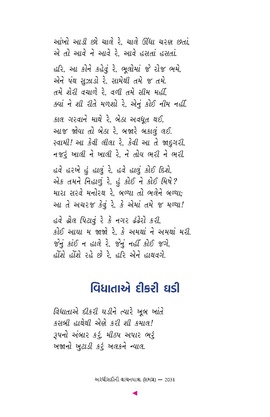 આંખો આડી છો ચાલે રે, ચાલે ઊંધા ચરણ છતાં,
એ તો આવે ને આવે રે, આવે હસતાં હસતાં.
હરિ, આ કોને કહેવું રે, ભૂલોમાં જે રોજ ભમે.
એને પંથ સુઝાડો રે, સામેથી તમે જ તમે.
તમે શેરી વચાળે રે, વળી તમે સીમ મહીં.
ક્યાં ને શી રીતે મળશો રે, એનું કોઈ નીમ નહીં.
કાલ ગરવાને માથે રે, બેઠા અવધૂત થઈ.
આજ જોયા તો બેઠા રે, બજારે બકાલું લઈ.
સ્વામી! આ કેવી લીલા રે, કેવી આ તે જાદુગરી.
નજરું ખાલી ને ખાલી રે, ને તોય ભરી ને ભરી.
હવે હરખે હું હાલું રે, હવે હાલું કોઈ દિશે.
એક તમને નિહાળું રે, હું કોઈ ને કોઈ મિષે?
મારા સરવે મનોરથ રે, બળ્યા તો ભલેને બળ્યા;
આ તે અચરજ કેવું રે, કે એમાં તમે જ મળ્યા!
હવે ઢોલ પિટાવું રે કે નગર ઢંઢેરો કરી.
કોઈ આઘા મ જાજો રે, કે અમથાં ને અમથાં મરી.
જેનું કાંઈ ન હાલે રે, જેનું નહીં કોઈ જગે.
હોંશે હોંશે રહે છે રે, હરિ એને હાથવગે.
વિધાતાએ દીકરી ઘડી
વિધાતાએ દીકરી ઘડીને ત્યારે ખૂબ ખાંતે
કસબી હાથેથી એણે કરી શી કમાલ!
રૂપનો અંબાર કરું, મીઠપ અપાર ભરું
ખજાનો ખુટાડી કરું ખલકને ન્યાલ.
2031